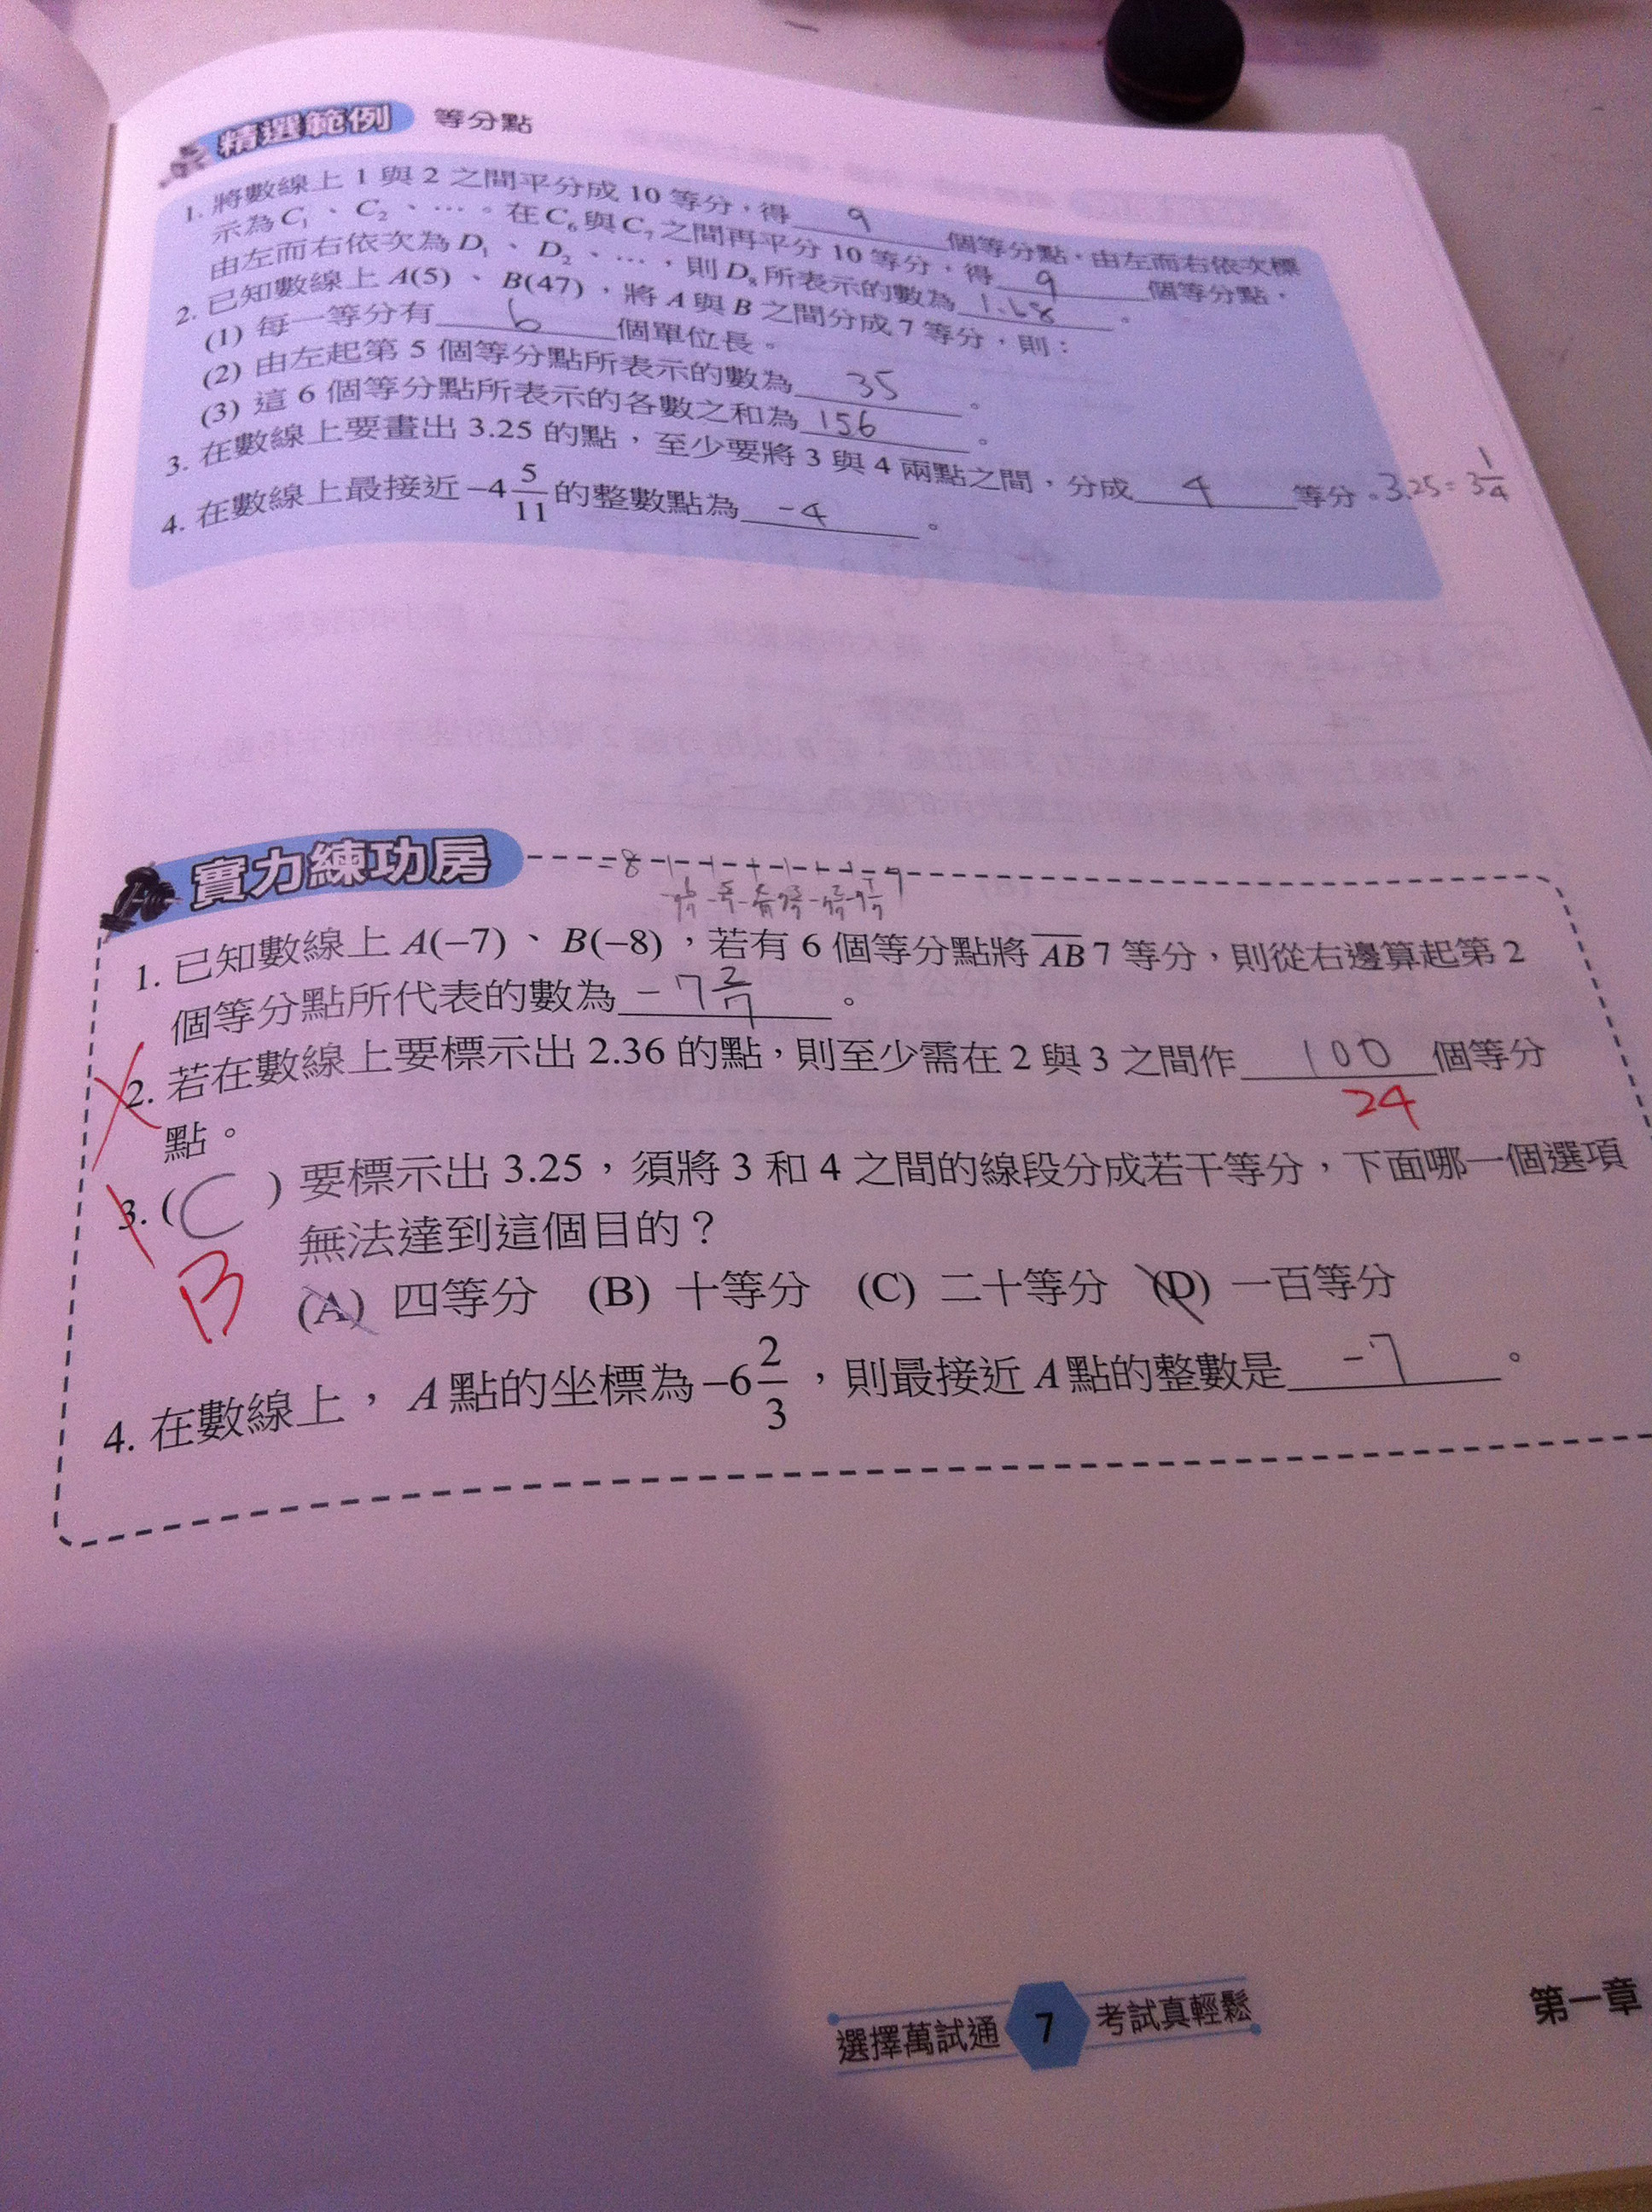 精選範例 等分點
1. 將數線上 1 與 2 之間平分成 10 等分，得 9 個等分點，由左而右依次標
示為 C₁、C₂、…。在 C₆ 與 C₇ 之間再平分 10 等分，得 9 個等分點，
由左而右依次為 D₁、D₂、…，則 D₈ 所表示的數為 1.68。
2. 已知數線上 A(5)、B(47)，將 A 與 B 之間分成 7 等分，則：
(1) 每一等分有 6 個單位長。
(2) 由左起第 5 個等分點所表示的數為 35。
(3) 這 6 個等分點所表示的各數之和為 156。
3. 在數線上要畫出 3.25 的點，至少要將 3 與 4 兩點之間，分成 4 等分。3.25 = 3 1/4
4. 在數線上最接近 −4 5/11 的整數點為 -4。
實力練功房
1. 已知數線上 A(−7)、B(−8)，若有 6 個等分點將 AB 7 等分，則從右邊算起第 2
個等分點所代表的數為 -7 2/7。
2. 若在數線上要標示出 2.36 的點，則至少需在 2 與 3 之間作 100 個等分
24
點。
3. (C) 要標示出 3.25，須將 3 和 4 之間的線段分成若干等分，下面哪一個選項
無法達到這個目的？
B
(A) 四等分 (B) 十等分 (C) 二十等分 (D) 一百等分
4. 在數線上，A 點的坐標為 −6 2/3，則最接近 A 點的整數是 -7。
選擇萬試通 7 考試真輕鬆
第一章